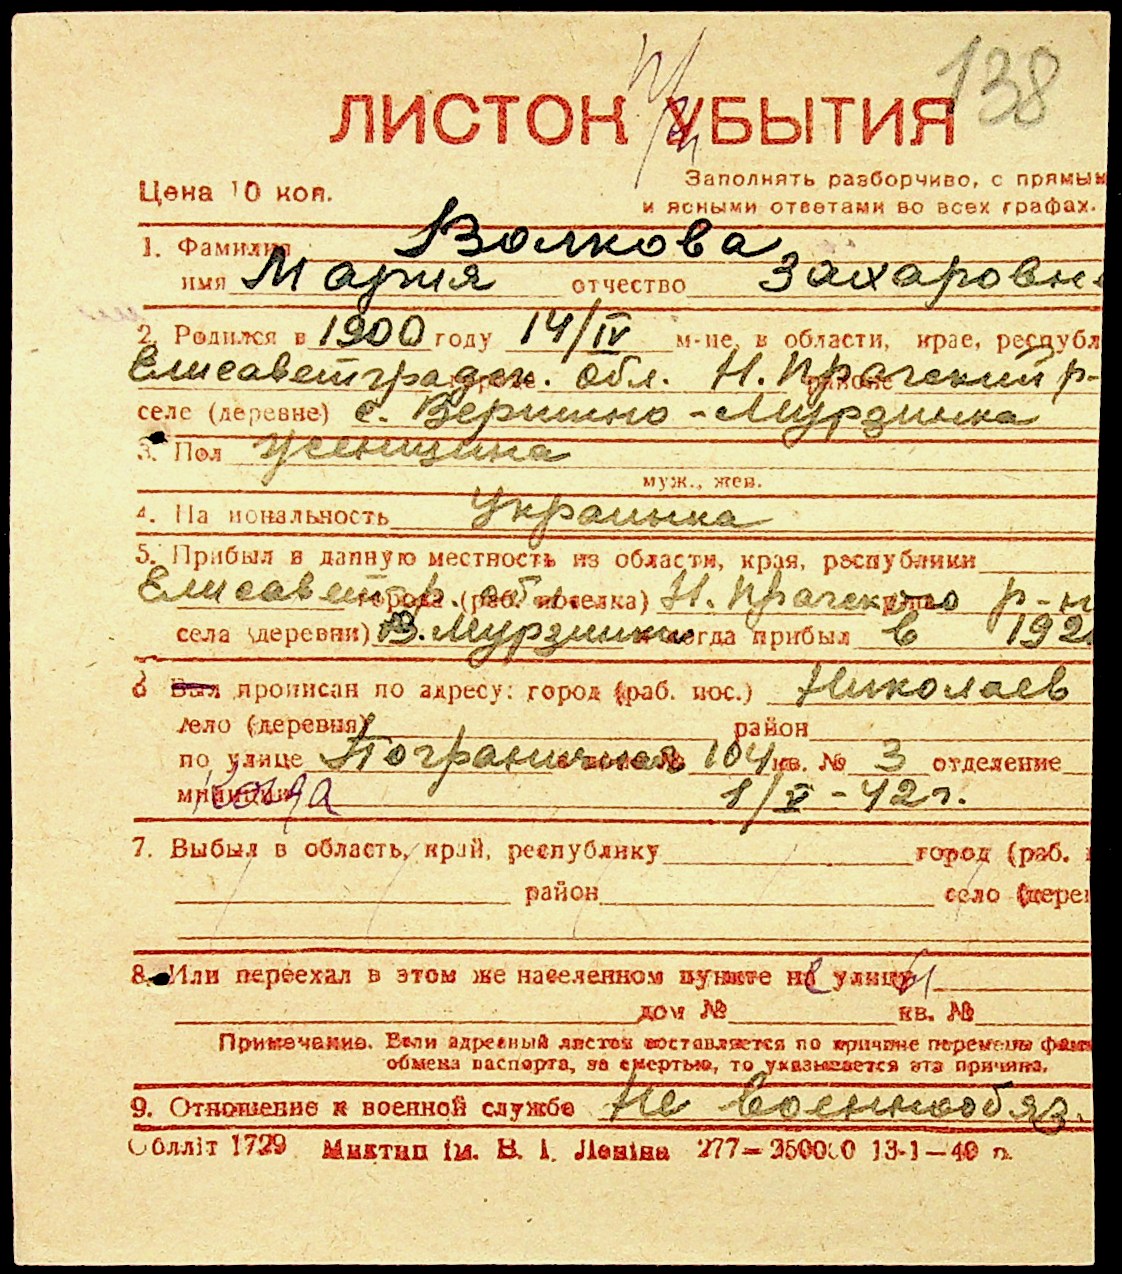 138
ЛИСТОК УБЫТИЯ
Цена 10 коп.
Заполнять разборчиво, с прямым
и ясными ответами во всех графах.
1. Фамилия Волкова
имя Мария отчество Захаровн
2. Родился в 1900 году 14/IV м-це, в области, крае, республ
Елисаветградск. обл. Н. Прагский р-
селе (деревне) с. Вершино-Мурзинка
3. Пол женщина
муж., жен.
4. На иональность Украинка
5. Прибыл в данную местность из области, края, республики
Елисаветгр. обл. города (раб. поселка) Н. Прагского р-н
села (деревни) В. Мурзинки когда прибыл в 192
6 Был прописан по адресу: город (раб. пос.) Николаев
село (деревня) район
по улице Пограничная 104 кв. № 3 отделение
милиции когда 1/V-42г.
7. Выбыл в область, край, республику город (раб.
район село (дерев
8. Или переехал в этом же населенном пункте на улицу
дом № кв. №
Примечание. Если адресный листок составляется по причине перемены фам
обмена паспорта, за смертью, то указывается эта причина.
9. Отношение к военной службе Не военнообяз.
Облліт 1729 Миктип ім. В. І. Леніна 277—250000 13-1—40 р.